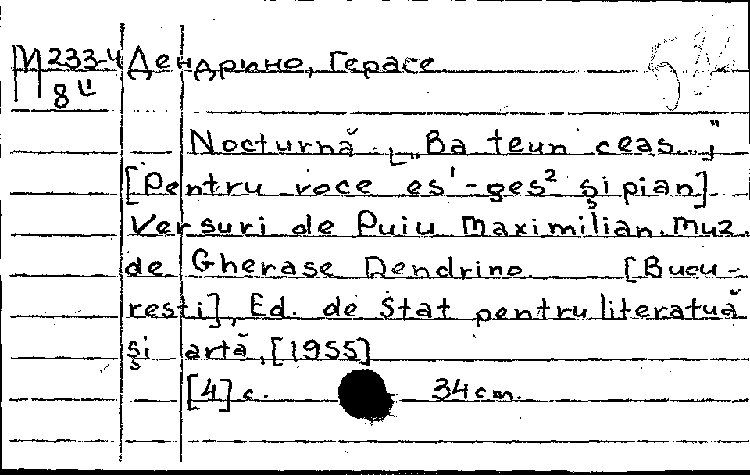 М 233-4 Дендрино, Герасе
8 ц
Nocturnă. [„Ba teun ceas..."]
[Pentru voce es¹-ges² şi pian].
Versuri de Puiu Maximilian. Muz.
de Gherase Dendrino [Bucu-
resti], Ed. de Stat pentru literatuă
şi artă, [1955]
[4] c. 34 cm.